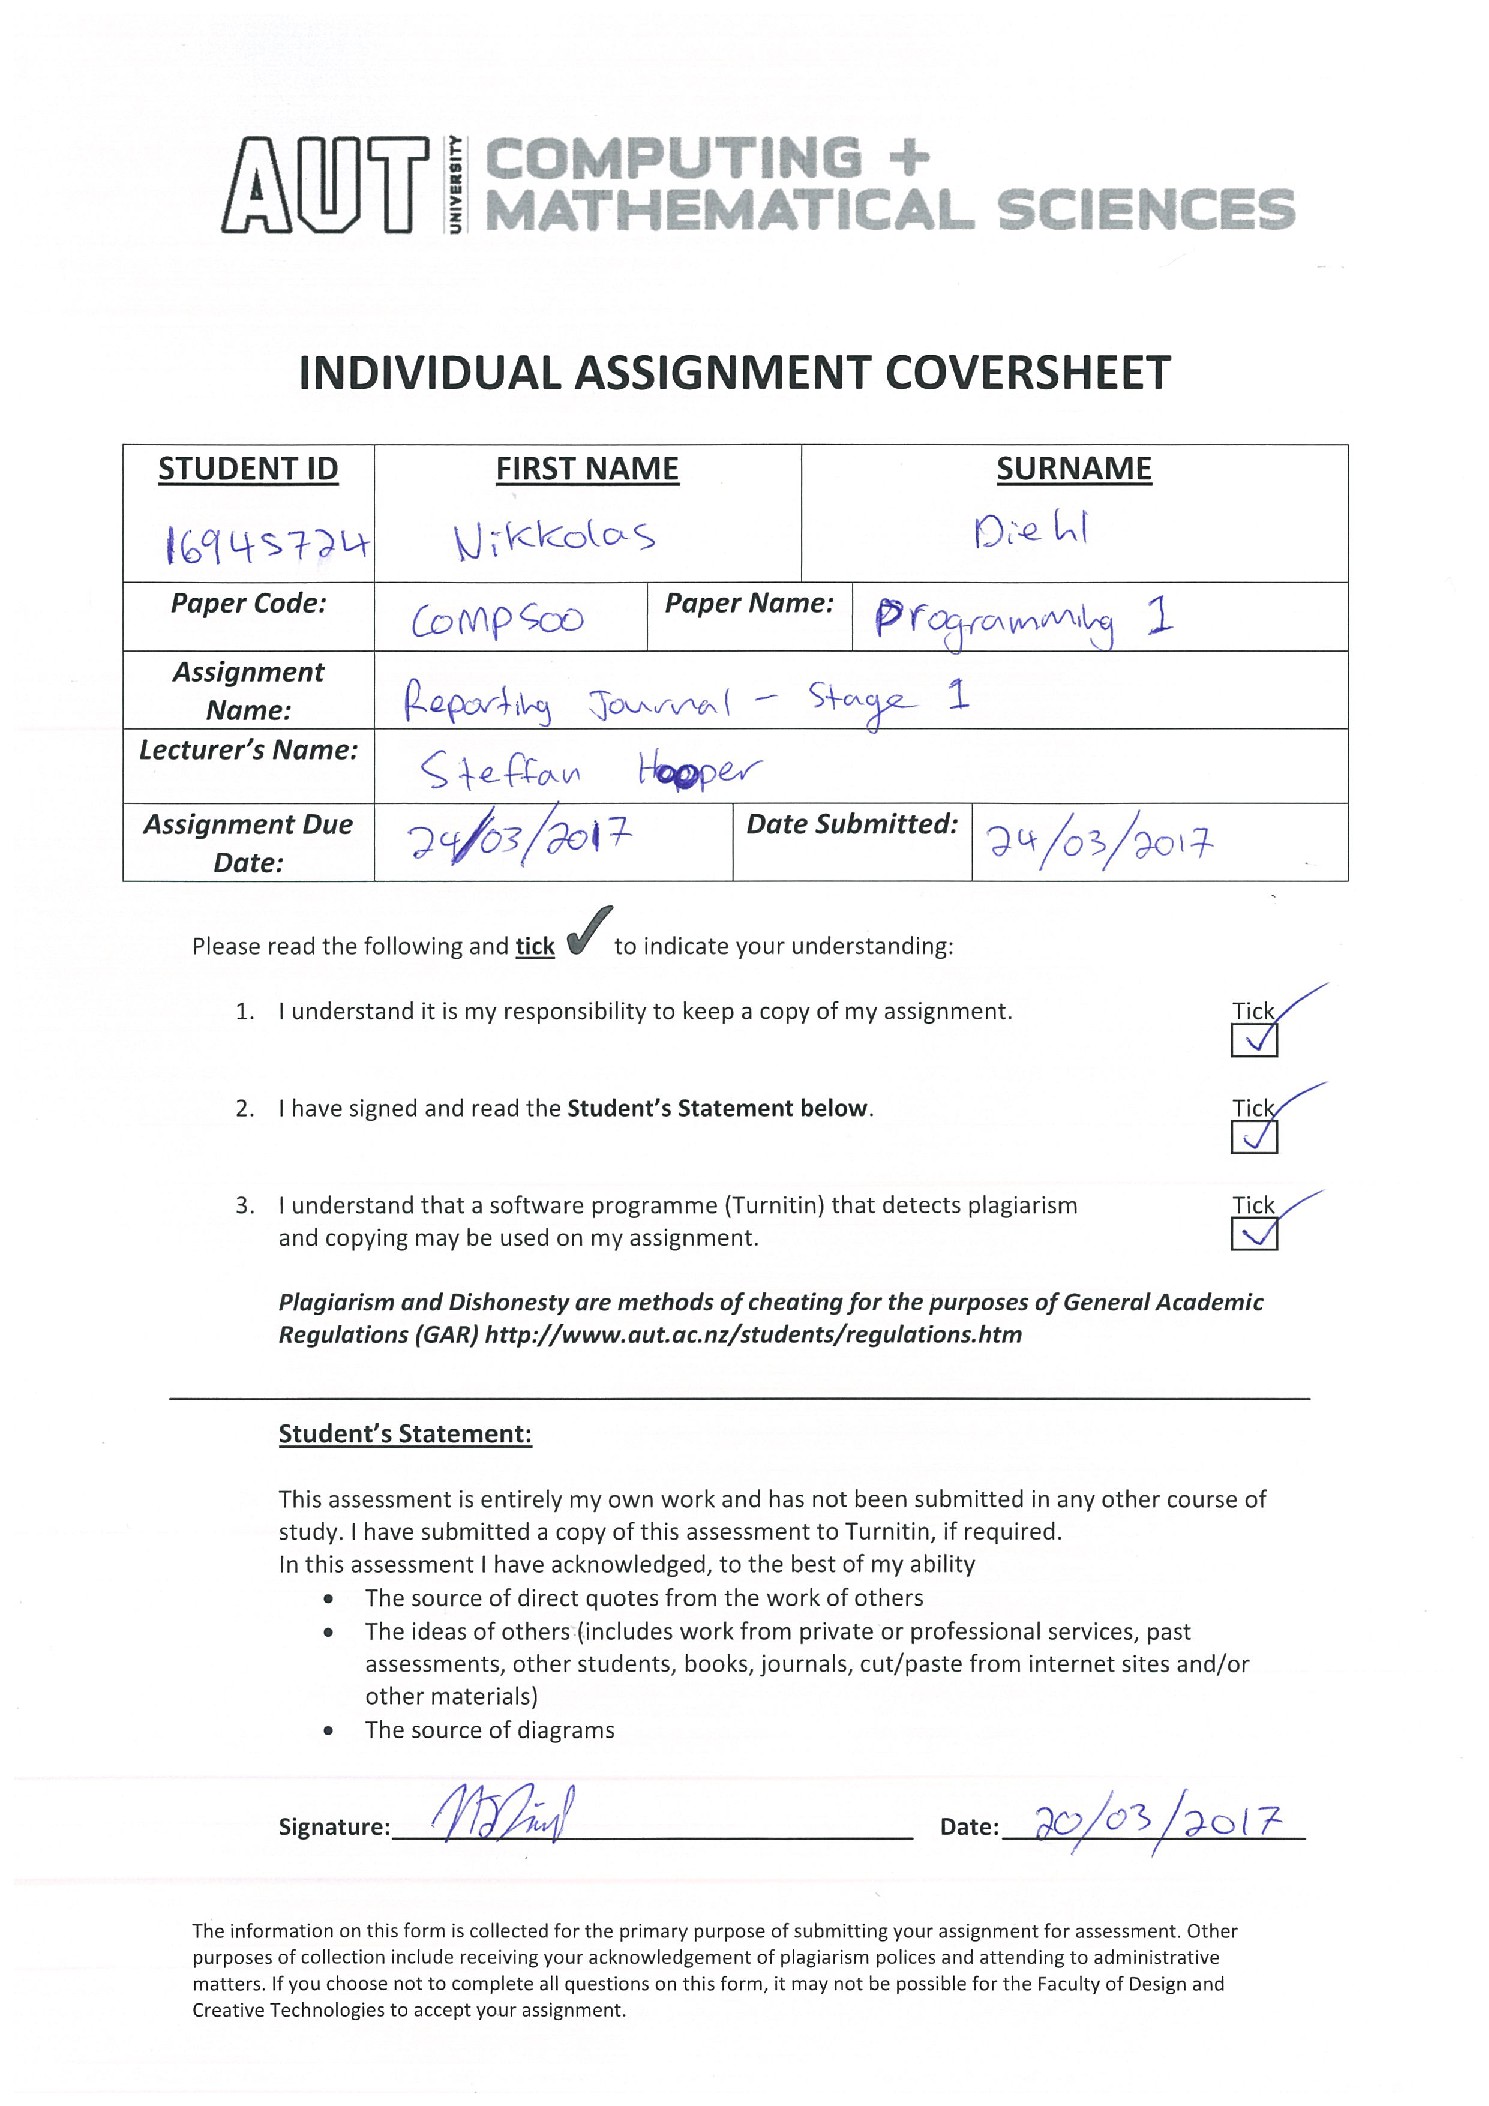 AUT UNIVERSITY COMPUTING +
MATHEMATICAL SCIENCES
INDIVIDUAL ASSIGNMENT COVERSHEET
STUDENT ID FIRST NAME SURNAME
16945724 Nikkolas Diehl
Paper Code: COMP500 Paper Name: Programming 1
Assignment
Name: Reporting Journal - Stage 1
Lecturer's Name: Steffan Hooper
Assignment Due
Date: 24/03/2017 Date Submitted: 24/03/2017
Please read the following and tick ✔ to indicate your understanding:
1. I understand it is my responsibility to keep a copy of my assignment. Tick ✓
2. I have signed and read the Student's Statement below. Tick ✓
3. I understand that a software programme (Turnitin) that detects plagiarism Tick
and copying may be used on my assignment. ✓
Plagiarism and Dishonesty are methods of cheating for the purposes of General Academic
Regulations (GAR) http://www.aut.ac.nz/students/regulations.htm
Student's Statement:
This assessment is entirely my own work and has not been submitted in any other course of
study. I have submitted a copy of this assessment to Turnitin, if required.
In this assessment I have acknowledged, to the best of my ability
• The source of direct quotes from the work of others
• The ideas of others (includes work from private or professional services, past
assessments, other students, books, journals, cut/paste from internet sites and/or
other materials)
• The source of diagrams
Signature: Date: 20/03/2017
The information on this form is collected for the primary purpose of submitting your assignment for assessment. Other
purposes of collection include receiving your acknowledgement of plagiarism polices and attending to administrative
matters. If you choose not to complete all questions on this form, it may not be possible for the Faculty of Design and
Creative Technologies to accept your assignment.